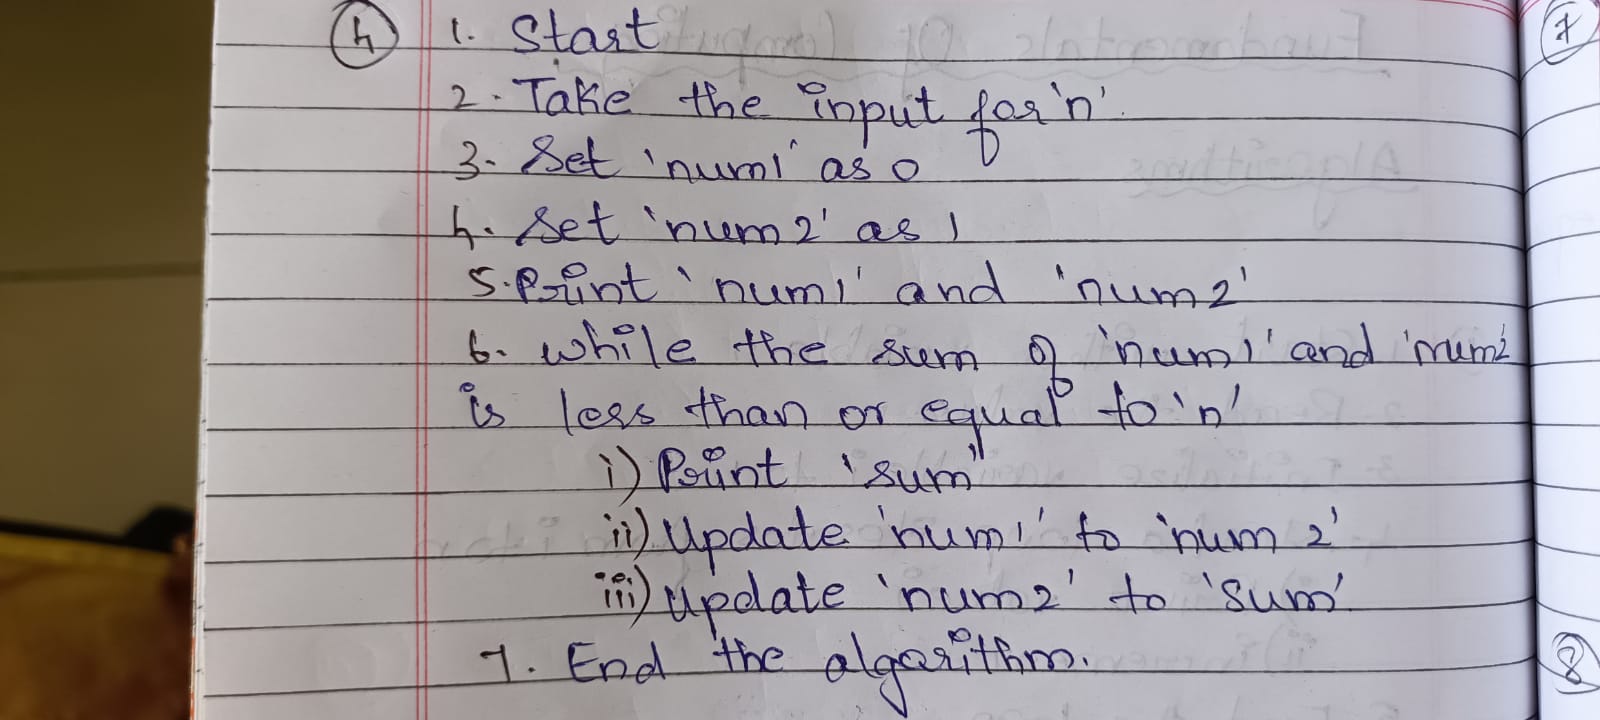 4 1. Start
2. Take the input for 'n'.
3. Set 'num1' as 0
4. Set 'num2' as 1
5. Print 'num1' and 'num2'
6. while the sum of 'num1' and 'num2'
is less than or equal to 'n'
i) Print 'sum'
ii) Update 'num1' to 'num2'
iii) Update 'num2' to 'sum'.
7. End the algorithm.
7
8